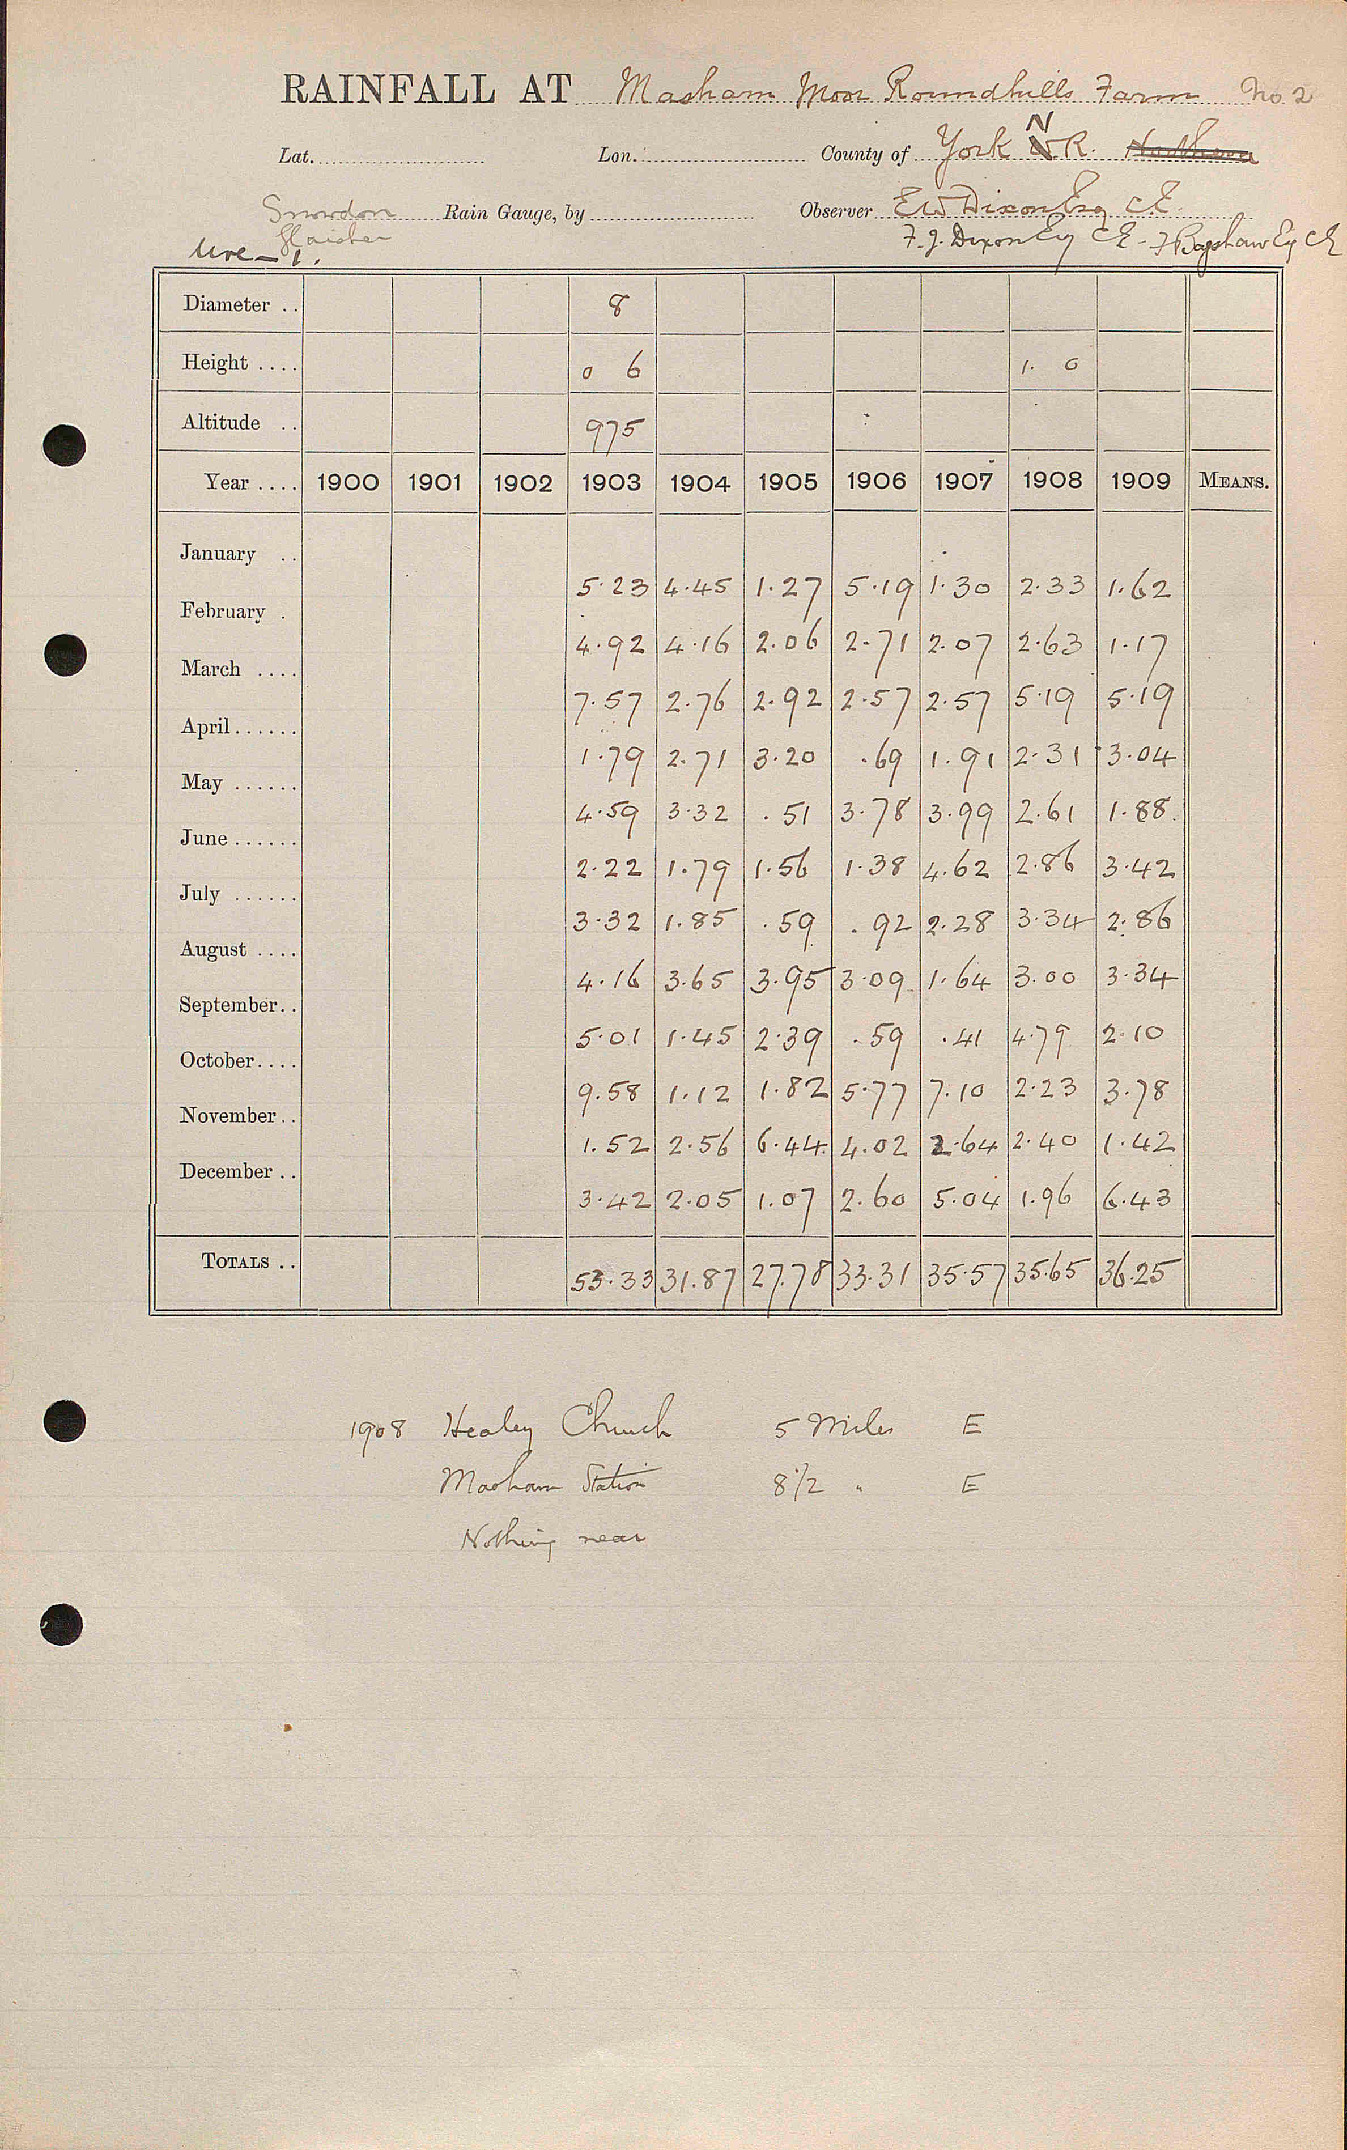 RAINFALL AT Masham Moor Roundhills Farm No 2
Lat. Lon. County of York N R.
Snowdon Rain Gauge, by Observer E W Dixon Esq C.E.
Glaisher F. J. Dixon Esq C E - F Bagshaw Esq C E
Ure - 1.
Diameter .. 8
Height .... 0 6 1. 0
Altitude .. 975
Year .... 1900 1901 1902 1903 1904 1905 1906 1907 1908 1909 MEANS.
January .. 5.23 4.45 1.27 5.19 1.30 2.33 1.62
February . 4.92 4.16 2.06 2.71 2.07 2.63 1.17
March .... 7.57 2.76 2.92 2.57 2.57 5.19 5.19
April...... 1.79 2.71 3.20 .69 1.91 2.31 3.04
May ...... 4.59 3.32 .51 3.78 3.99 2.61 1.88
June...... 2.22 1.79 1.56 1.38 4.62 2.86 3.42
July ...... 3.32 1.85 .59 .92 2.28 3.34 2.86
August .... 4.16 3.65 3.95 3.09 1.64 3.00 3.34
September.. 5.01 1.45 2.39 .59 .41 4.79 2.10
October.... 9.58 1.12 1.82 5.77 7.10 2.23 3.78
November.. 1.52 2.56 6.44 4.02 2.64 2.40 1.42
December .. 3.42 2.05 1.07 2.60 5.04 1.96 6.43
TOTALS .. 53.33 31.87 27.78 33.31 35.57 35.65 36.25
1908 Healey Church 5 Miles E
Masham Station 8 1/2 " E
Nothing near